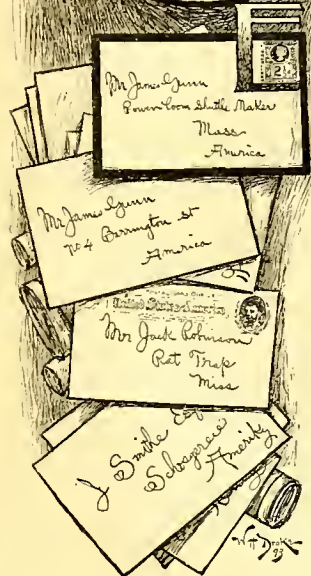 2½
Mr James Gunn
Power Loom Shuttle Maker
Mass
America
Mr James Gunn
No 4 Barrington St
America
United States America
Mr Jack Robinson
Rat Trap
Miss
J Smithe Esq
Schogereie
Ameriky
93